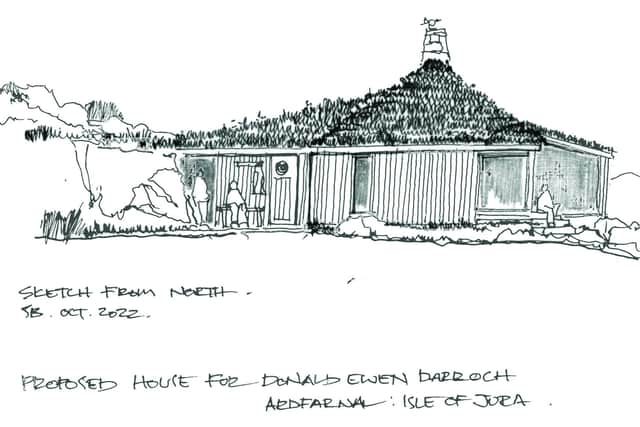 SKETCH FROM NORTH.
SB. OCT. 2022.
PROPOSED HOUSE FOR DONALD EWEN DARROCH
ARDFARNAL : ISLE OF JURA .